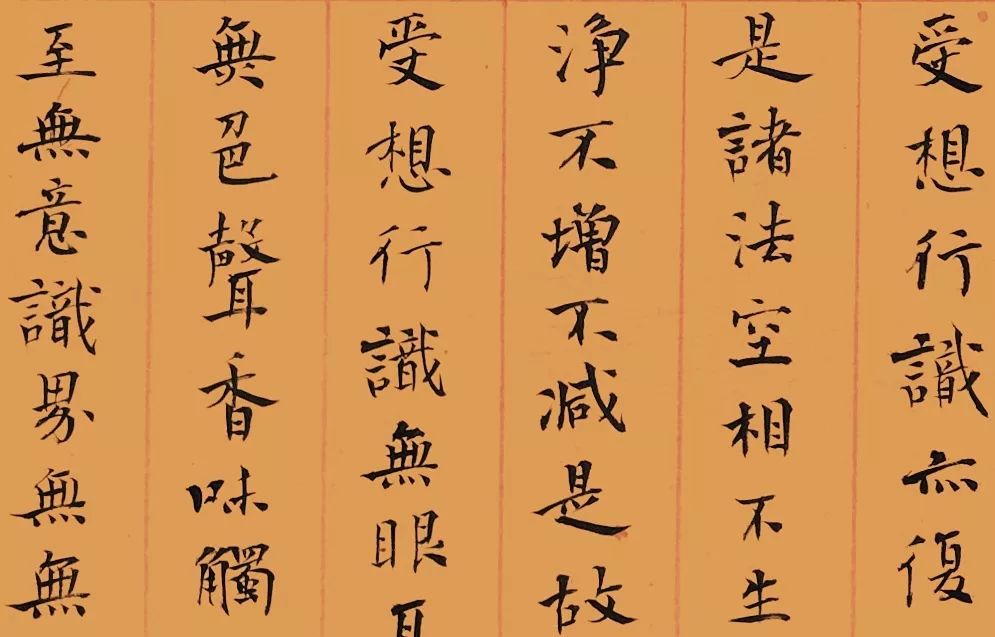 受想行識亦復
是諸法空相不生
淨不增不減是故
受想行識無眼耳
無色聲香味觸
至無意識界無無